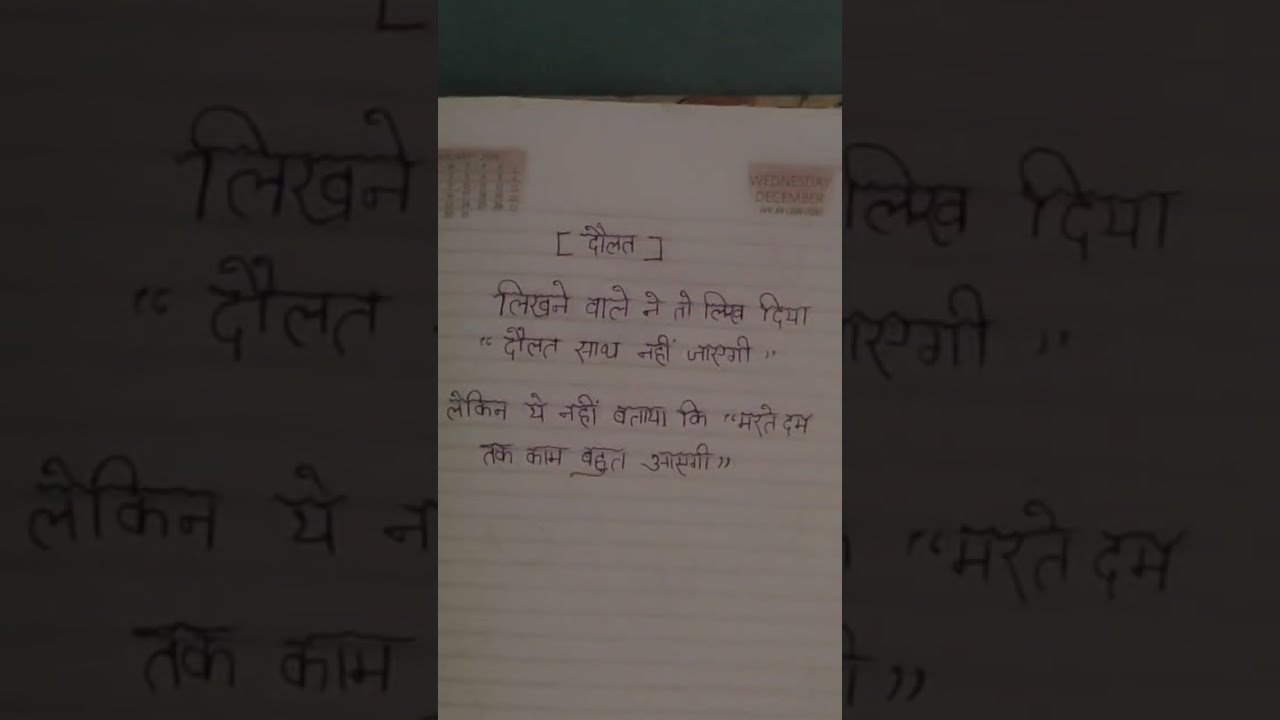 WEDNESDAY
DECEMBER
[ दौलत ]
लिखने वाले ने तो लिख दिया
“ दौलत साथ नहीं जाएगी ”
लेकिन ये नहीं बताया कि “मरते दम
तक काम बहुत आएगी”